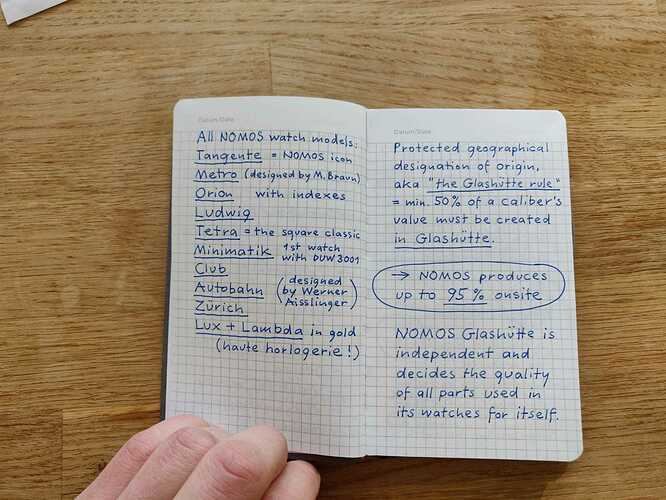 Datum/Date
All NOMOS watch models:
Tangente = NOMOS icon
Metro (designed by M. Braun)
Orion with indexes
Ludwig
Tetra = the square classic
Minimatik 1st watch
with DUW 3001
Club
Autobahn (designed
by Werner
Aisslinger)
Zürich
Lux + Lambda in gold
(haute horlogerie!)
Datum/Date
Protected geographical
designation of origin,
aka "the Glashütte rule"
= min. 50% of a caliber's
value must be created
in Glashütte.
→ NOMOS produces
up to 95% onsite
NOMOS Glashütte is
independent and
decides the quality
of all parts used in
its watches for itself.